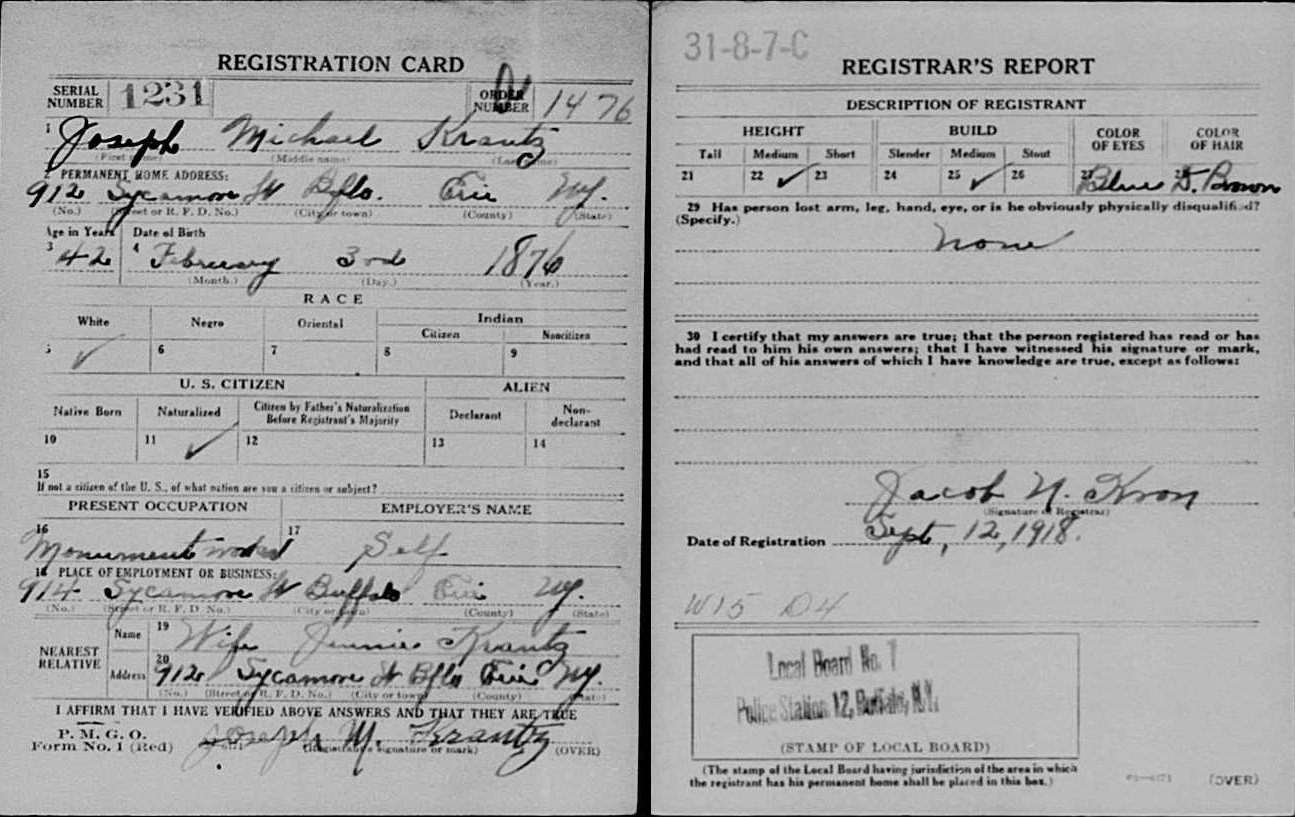 REGISTRATION CARD
SERIAL NUMBER 1231 ORDER NUMBER A 1476
1 Joseph Michael Krantz
(First name) (Middle name) (Last name)
2 PERMANENT HOME ADDRESS:
912 Sycamore St Bflo. Erie N.Y.
(No.) (Street or R. F. D. No.) (City or town) (County) (State)
Age in Years Date of Birth
3 42 4 February 3rd 1876
(Month.) (Day.) (Year.)
RACE
White Negro Oriental Indian
Citizen Noncitizen
5 ✓ 6 7 8 9
U. S. CITIZEN ALIEN
Native Born Naturalized Citizen by Father's Naturalization Before Registrant's Majority Declarant Non-declarant
10 11 ✓ 12 13 14
15
If not a citizen of the U. S., of what nation are you a citizen or subject?
PRESENT OCCUPATION EMPLOYER'S NAME
16 Monument works 17 Self
18 PLACE OF EMPLOYMENT OR BUSINESS:
914 Sycamore St Buffalo Erie N.Y.
(No.) (Street or R. F. D. No.) (City or town) (County) (State)
NEAREST RELATIVE Name 19 Wife Jennie Krantz
Address 20 912 Sycamore St Bflo Erie N.Y.
(No.) (Street or R. F. D. No.) (City or town) (County) (State)
I AFFIRM THAT I HAVE VERIFIED ABOVE ANSWERS AND THAT THEY ARE TRUE
P. M. G. O.
Form No. 1 (Red) Joseph M. Krantz
(Registrant's signature or mark) (OVER)
31-8-7-C
REGISTRAR'S REPORT
DESCRIPTION OF REGISTRANT
HEIGHT BUILD COLOR OF EYES COLOR OF HAIR
Tall Medium Short Slender Medium Stout
21 22 ✓ 23 24 25 ✓ 26 27 Blue 28 D. Brown
29 Has person lost arm, leg, hand, eye, or is he obviously physically disqualified?
(Specify.)
none
30 I certify that my answers are true; that the person registered has read or has
had read to him his own answers; that I have witnessed his signature or mark,
and that all of his answers of which I have knowledge are true, except as follows:
Jacob N. Kron
(Signature of Registrar)
Date of Registration Sept, 12, 1918.
W15 D4
Local Board No. 7
Police Station 12, Buffalo, N.Y.
(STAMP OF LOCAL BOARD)
(The stamp of the Local Board having jurisdiction of the area in which
the registrant has his permanent home shall be placed in this box.)
(OVER)